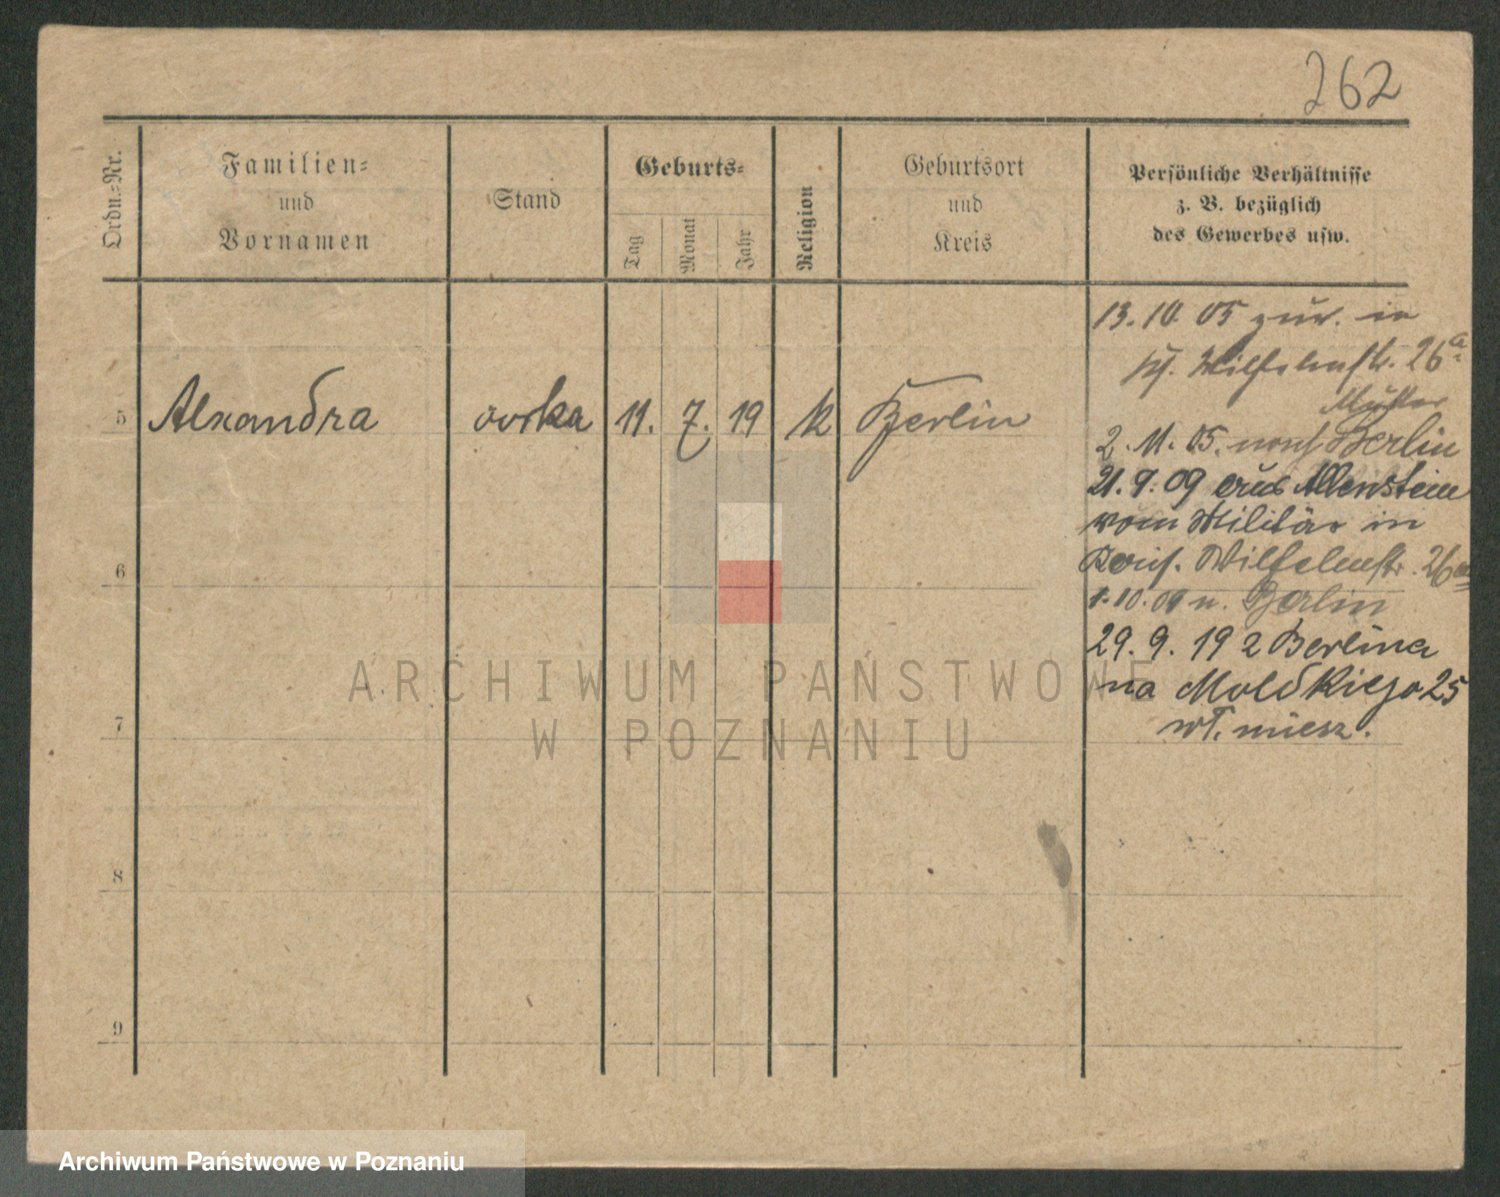 262
Ordn.-Nr.
Familien-
und
Vornamen
Stand
Geburts-
Tag
Monat
Jahr
Religion
Geburtsort
und
Kreis
Persönliche Verhältnisse
z. B. bezüglich
des Gewerbes usw.
13. 10. 05 zur. in
Wilhelmstr. 26a
Mutter
5 Alexandra córka 11. 7. 19 k Berlin
2. 11. 05. nach Berlin
21. 9. 09 aus Allenstein
vom Militär in
Wilhelmstr. 26
1. 10. 09 n. Berlin
6
29. 9. 19 z Berlina
na Moldkiego 25
wł. miesz.
7
8
9
ARCHIWUM PAŃSTWOWE
W POZNANIU
Archiwum Państwowe w Poznaniu